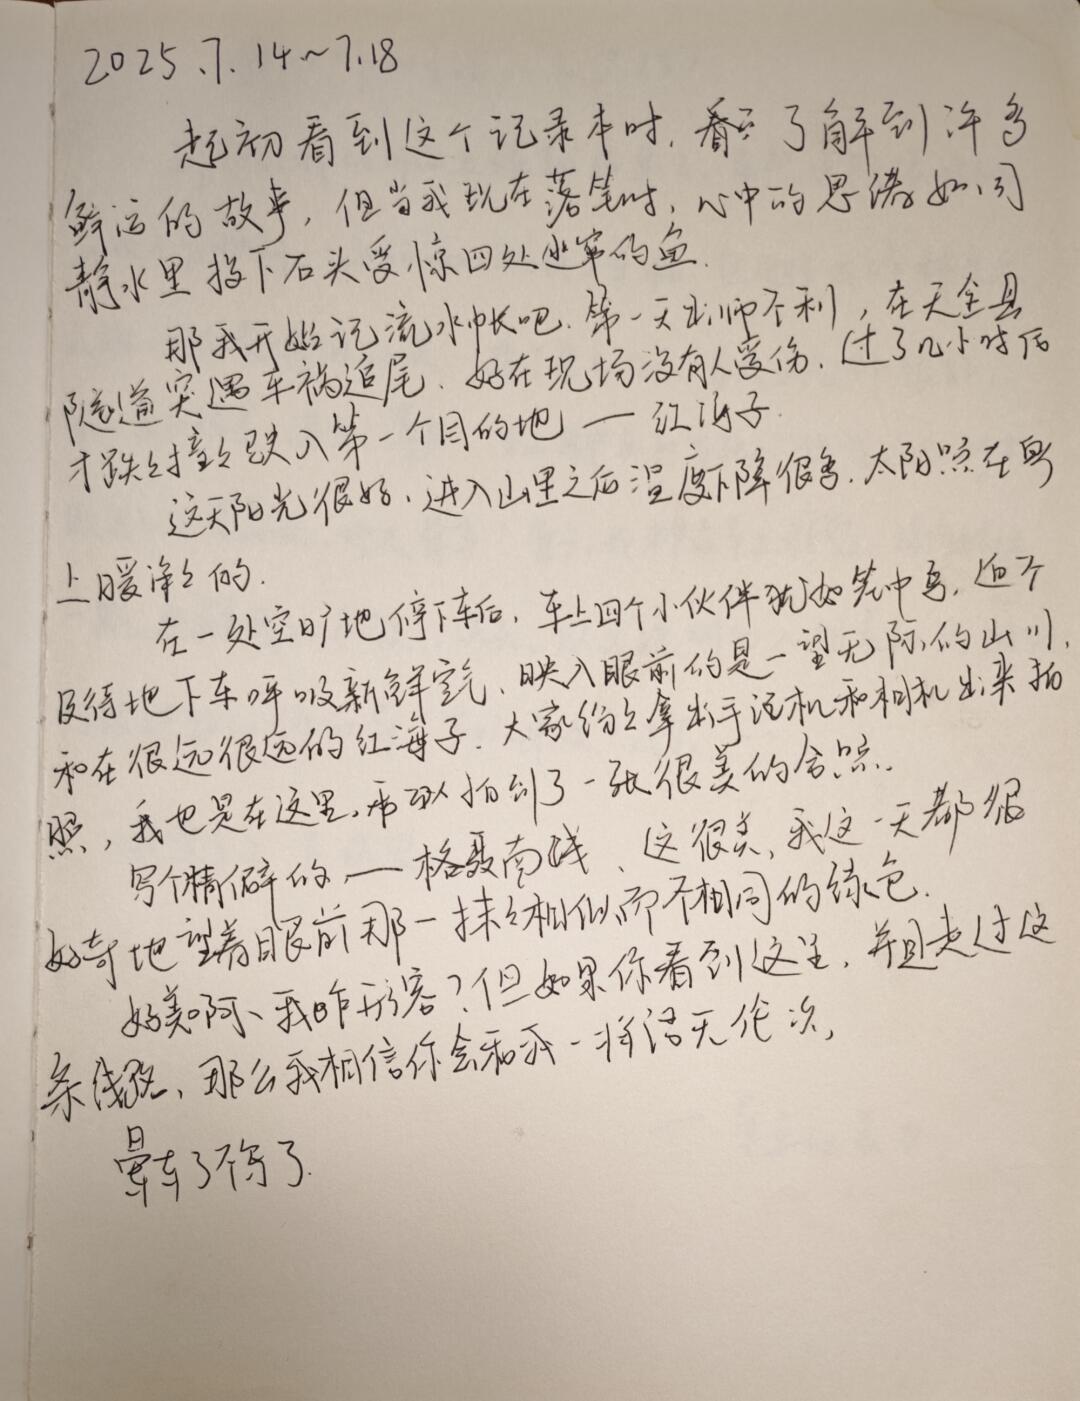 2025.7.14~7.18
起初看到这个记录本时,看了了解到许多
鲜活的故事,但当我现在落笔时,心中的思绪如同
静水里投下石头受惊四处逃窜的鱼.
那我开始记流水帐吧.第一天出师不利,在天全县
隧道突遇车祸追尾.好在现场没有人受伤.过了几小时后
才跌跌撞撞跌入第一个目的地—红海子.
这天阳光很好,进入山里之后温度下降很多.太阳照在身
上暖洋洋的.
在一处空旷地停下车后,车上四个小伙伴犹如笼中鸟,迫不
及待地下车呼吸新鲜空气,映入眼前的是一望无际的山川,
和在很远很远的红海子.大家纷纷拿出手机和相机出来拍
照,我也是在这里,有幸拍到了一张很美的合照.
写个精僻的,—格聂南线、这很美,我这一天都很
好奇地望着眼前那一抹抹相似而不相同的绿色.
好美啊、我咋形容?但如果你看到这里,并且走过这
条线路,那么我相信你会和我一样语无伦次,
晕车了不写了.